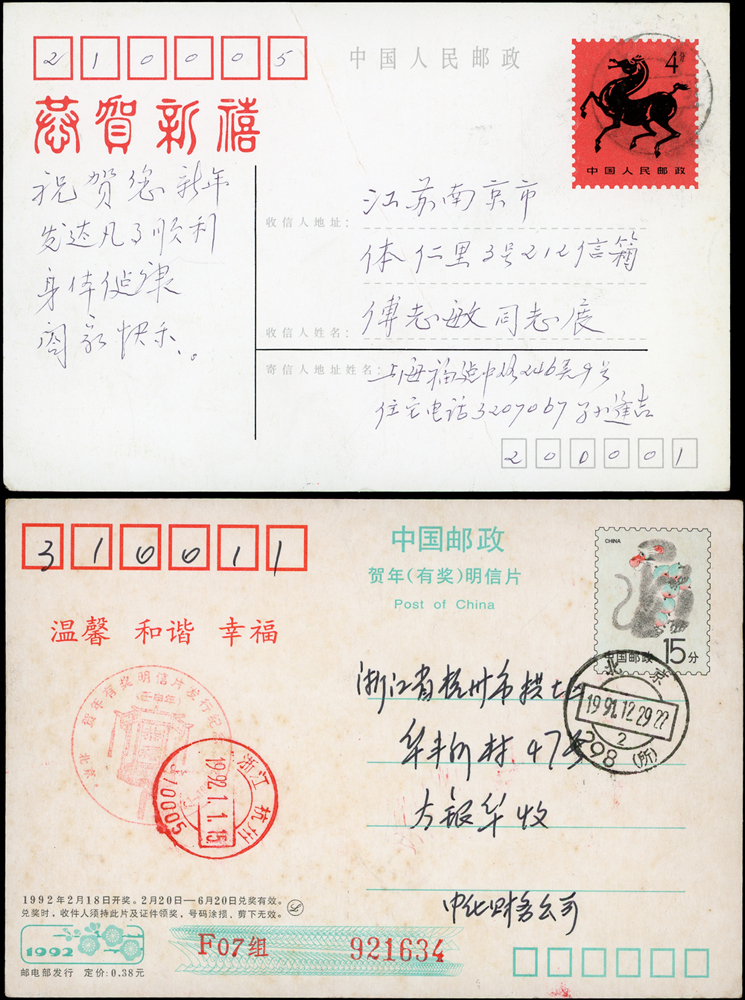 210005
中国人民邮政
4分
中国人民邮政
恭贺新禧
祝贺您新年
发达凡事顺利
身体健康
阖家快乐。
收信人地址：
江苏南京市
体仁里3号212信箱
收信人姓名：
傅志敏同志展
寄信人地址姓名：
上海福建中路246弄9号
住宅电话3207067
200001
310011
中国邮政
贺年(有奖)明信片
Post of China
CHINA
中国邮政 15分
温馨 和谐 幸福
贺年有奖明信片发行纪念
浙江 杭州
1992.1.1.15
310005
北京
1991.12.29.22
2
298(所)
浙江省杭州市拱
华丰新村47
方银华收
中化财务公司
1992年2月18日开奖。2月20日—6月20日兑奖有效。
兑奖时，收件人须持此片及证件领奖，号码涂损、剪下无效。
1992
F07组 921634
邮电部发行 定价：0.38元